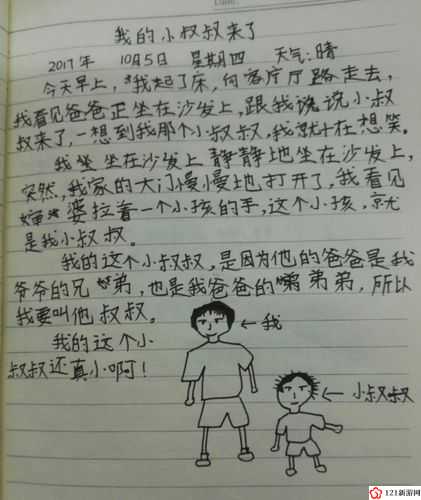 我的小叔叔来了
2017年 10月5日 星期四 天气:晴
今天早上,我起了床,向客厅厅路走去,
我看见爸爸正坐在沙发上,跟我说说小叔
叔来了,一想到我那个小叔叔,我就在想笑。
我坐坐在沙发上静静地坐在沙发上,
突然,我家的大门慢慢地打开了,我看见
婆拉着一个小孩的手,这个小孩,就
是我小叔叔。
我的这个小叔叔,是因为他的爸爸是我
爷爷的兄弟,也是我爸爸的弟弟,所以
我要叫他叔叔。
我的这个小
叔叔还真小啊!
←我
←小叔叔
121新游网